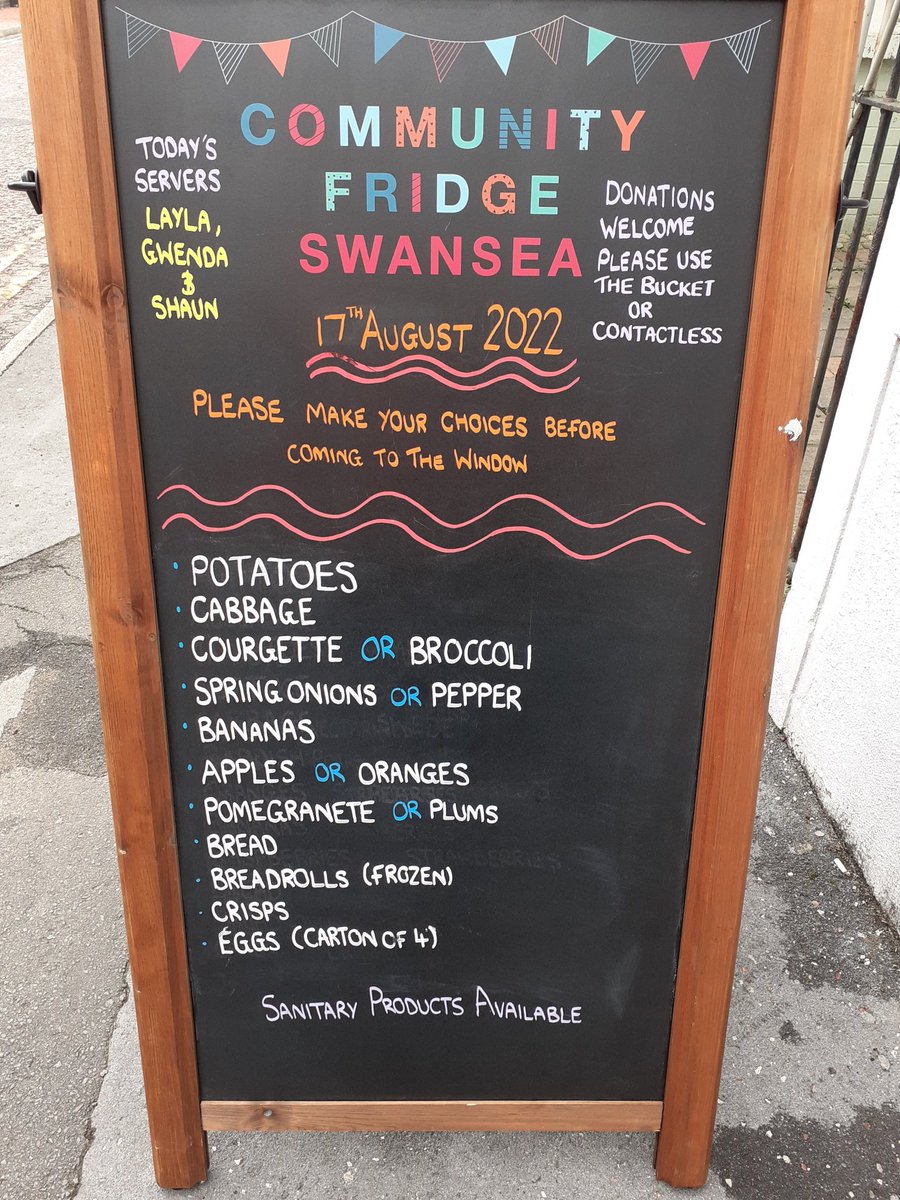 COMMUNITY
FRIDGE
SWANSEA
TODAY'S
SERVERS
LAYLA,
GWENDA
&
SHAUN
DONATIONS
WELCOME
PLEASE USE
THE BUCKET
OR
CONTACTLESS
17TH AUGUST 2022
PLEASE MAKE YOUR CHOICES BEFORE
COMING TO THE WINDOW
• POTATOES
• CABBAGE
• COURGETTE OR BROCCOLI
• SPRING ONIONS OR PEPPER
• BANANAS
• APPLES OR ORANGES
• POMEGRANETE OR PLUMS
• BREAD
• BREADROLLS (FROZEN)
• CRISPS
• EGGS (CARTON OF 4)
SANITARY PRODUCTS AVAILABLE